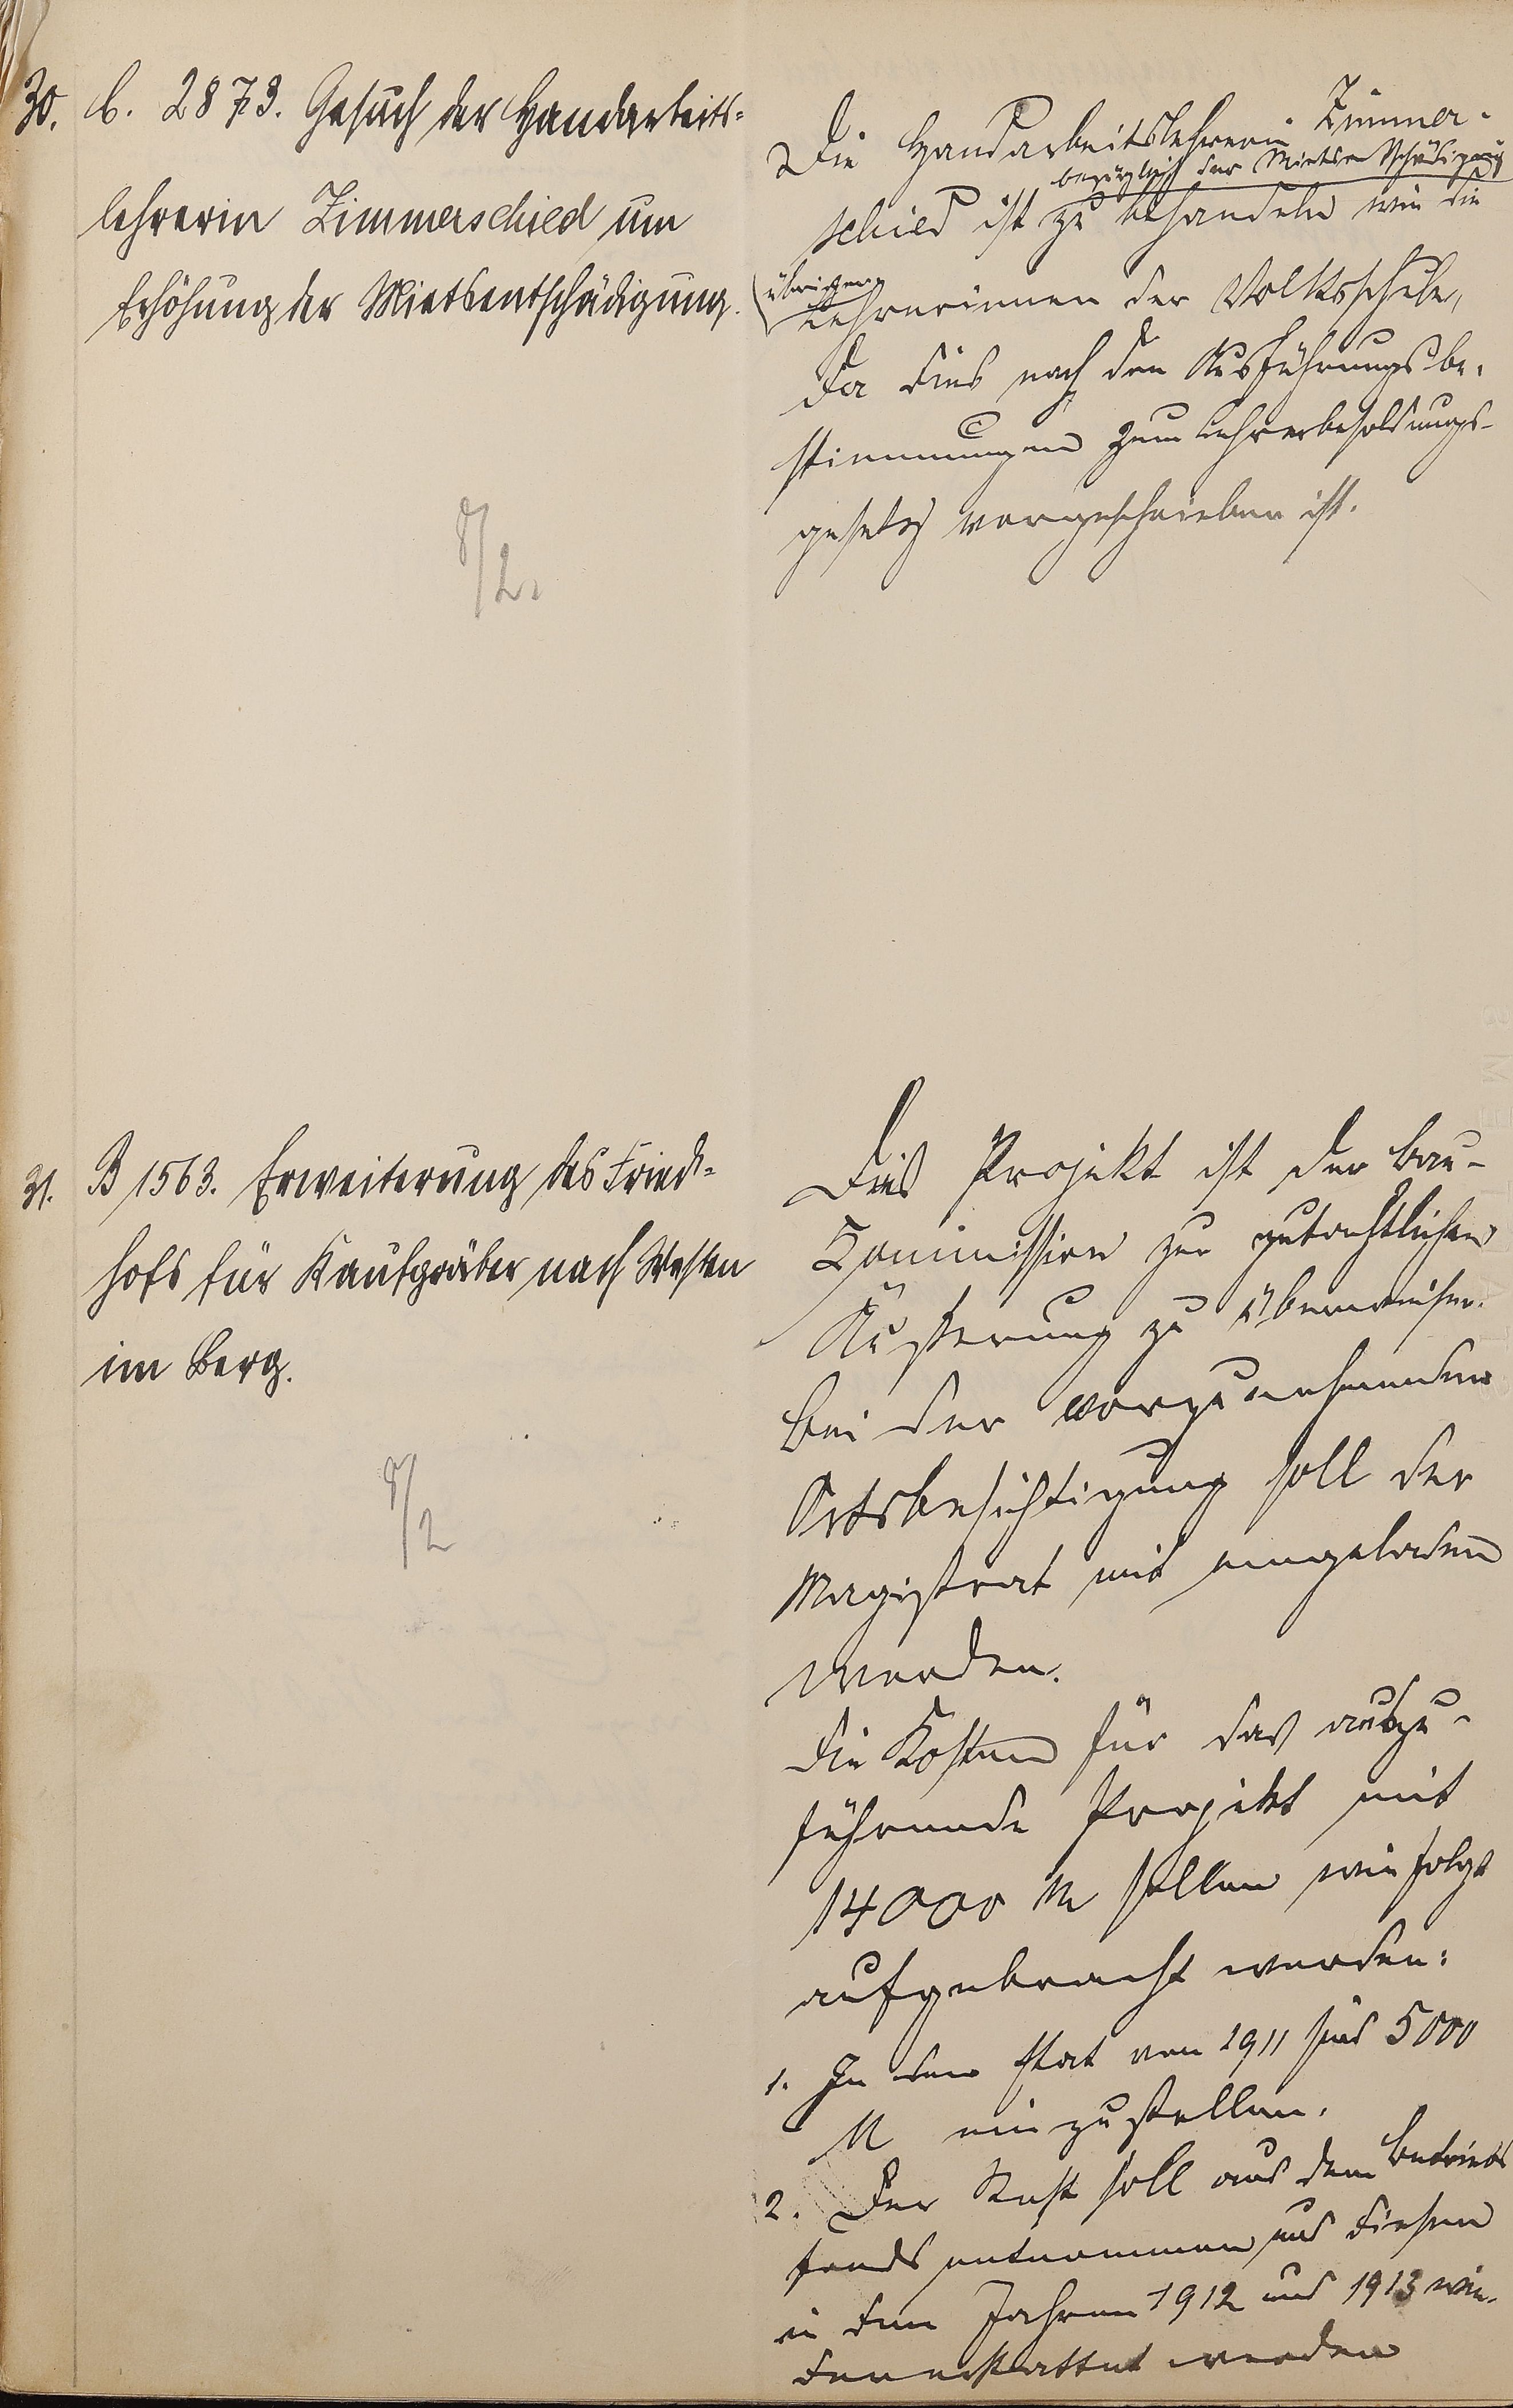 30. C. 2873. Gesuch der Handarbeits-
lehrerin Zimmerschied um
Erhöhung der Mietsentschädigung.
8/2.
Die Handarbeitslehrerin Zimmer-
bezüglich der Mietsentschädigung
schied ist zu behandeln wie die
übrigen
Lehrerinnen der Volksschule,
da dies nach den Ausführungsbe-
stimmungen zum Lehrerbesoldungs-
gesetz vorgeschrieben ist.
31. B 1563. Erweiterung des Fried-
hofs für Kaufgräber nach Westen
im Berg.
8/2
Dies Projekt ist der Bau-
Kommission zur gutachtlichen
Äußerung zu überweisen.
Bei der vorzunehmenden
Ortsbesichtigung soll der
Magistrat mit eingeladen
werden.
Die Kosten für das auszu-
führende Projekt mit
14000 M sollen wie folgt
aufgebracht werden:
1. In den Etat von 1911 sind 5000
M einzustellen.
2. Der Rest soll aus dem Betriebs
fonds entnommen und diesem
in den Jahren 1912 und 1913 wie-
dererstattet werden